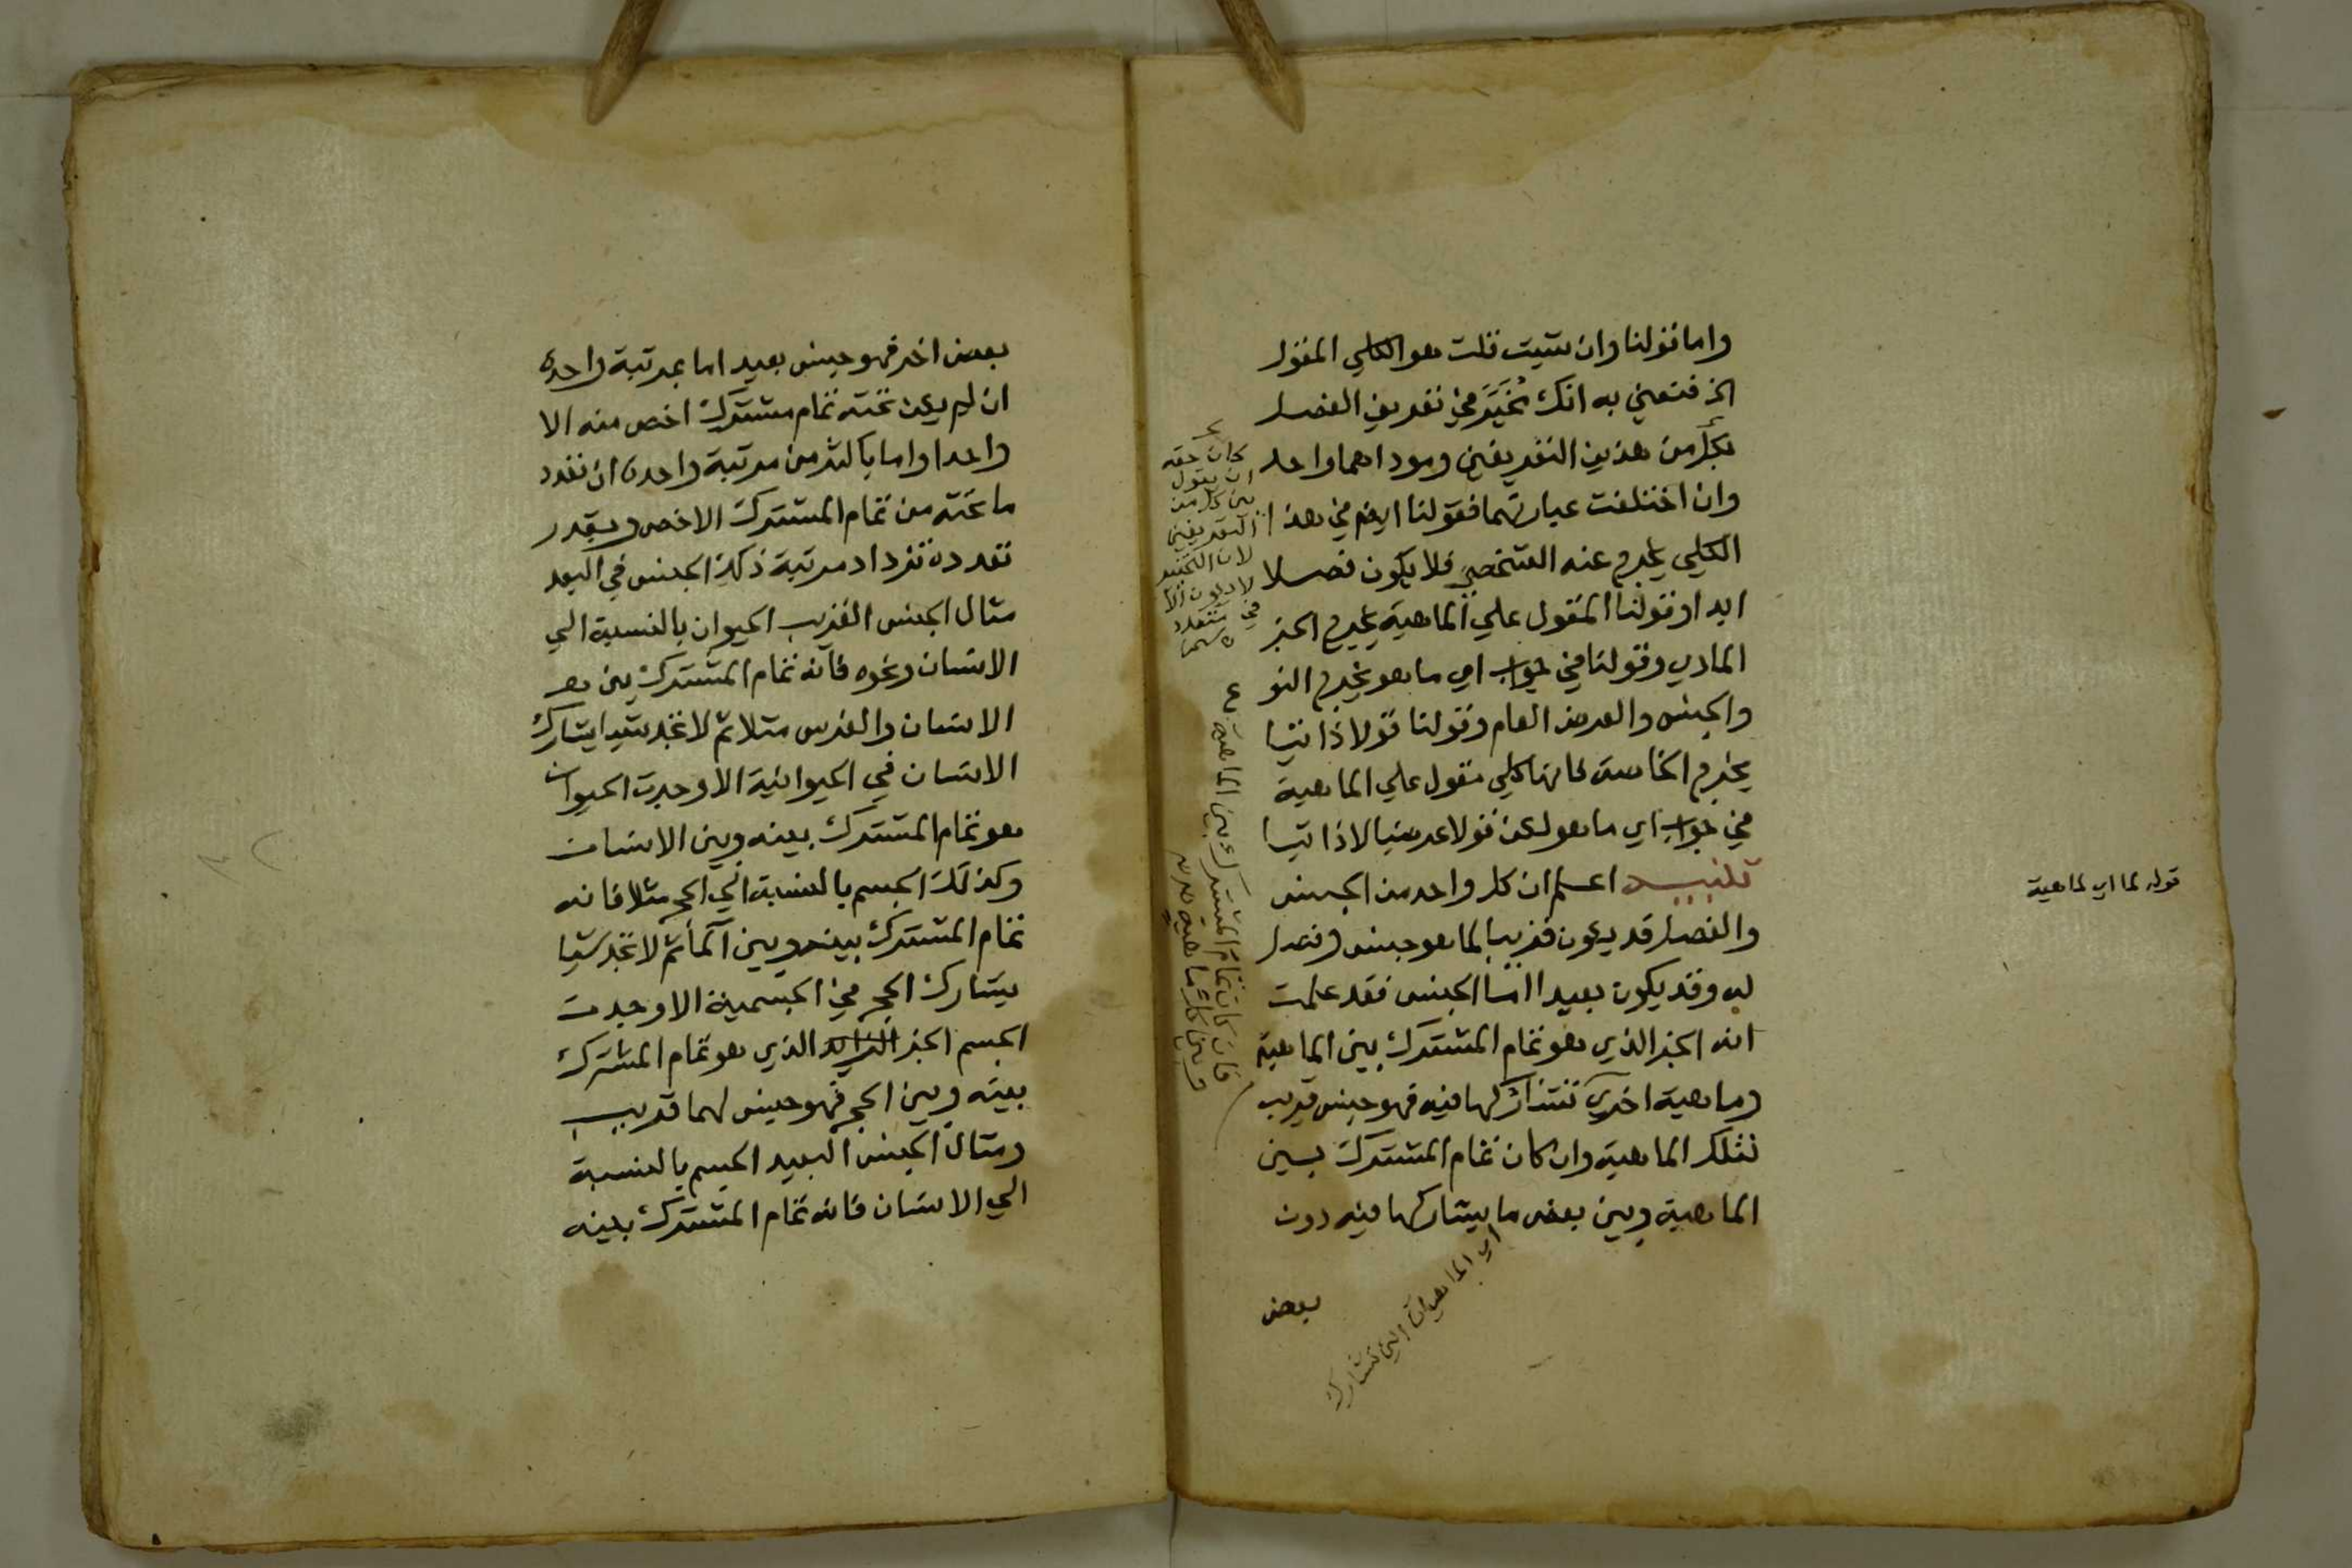 واما قولنا وان شيت قلت هو الكلي المقول
الخ فنعني به انك مُخَيَّر في تعريف الفصل
بكل من هذين التعريفين ومودّاهما واحد
وان اختلفت عبارتهما فقولنا ايضا في هذا
الكلي يخرج عنه الشخص فلا يكون فصلا
ابدا وقولنا المقول علي الماهية يخرج الجز
المادي وقولنا في جواب اي ما هو يخرج النو
والجنس والعرض العام وقولنا قولا ذاتيا
يخرج الخاصة فانها كلي مقول علي الماهية
في جواب اي ما هو لكن قولا عرضيا لا ذاتيا
تنبيه اعلم ان كل واحد من الجنس
والفصل قد يكون قريبا لما هو جنس وفصل
له وقد يكون بعيدا امّا الجنس فقد علمت
انه الجز الذي هو تمام المشترك بين الماهية
وماهية اخري تشاركها فيه فهو جنس قريب
لتلك الماهية وان كان تمام المشترك بين
الماهية وبين بعض ما يشاركها فيه دون
بعض
كان حقه
ان يقول
بين كل من
التعريفين
لان التخيير
لا يكون الا
في متعدد
فان كان تمام المشترك بين الماهية
وبين كل ماهية
اي الماهيات التي تشارك
قوله لما اي لماهية
بعض اخر فهو جنس بعيد اما بمرتبة واحدة
ان لم يكن تحته تمام مشترك اخص منه الا
واحدا واما باكثر من مرتبة واحدة ان تعدد
ما تحته من تمام المشترك الاخص وبقدر
تعدده تزداد مرتبة ذلك الجنس في البعد
مثال الجنس القريب الحيوان بالنسبة الي
الانسان ونحوه فانه تمام المشترك بين
الانسان والفرس مثلا ثم لا تجد شيا يشارك
الانسان في الحيوانية الا وجدت الحيوان
هو تمام المشترك بينه وبين الانسان
وكذلك الجسم بالنسبة الي الحجر مثلا فانه
تمام المشترك بينه وبين الماء ثم لا تجد شيا
يشارك الحجر في الجسمية الا وجدت
الجسم الجز الذي هو تمام المشترك
بينه وبين الحجر فهو جنس لهما قريب
ومثال الجنس البعيد الجسم بالنسبة
الي الانسان فانه تمام المشترك بينه